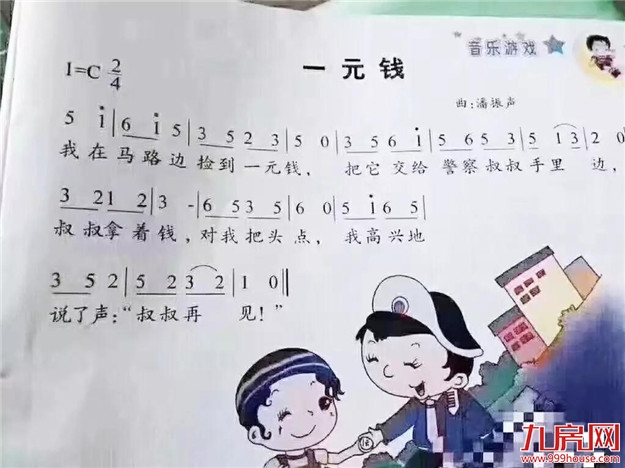 音乐游戏
一元钱
1=C 2/4
曲:潘振声
5 i|6 i 5|3 5 2 3|5 0|3 5 6 i|5 6 5 3|5 1 3|2 0
我在马路边捡到一元钱, 把它交给警察叔叔手里边,
3 2 1 2|3 -|6 5 3 5|6 0|5 i 6 5|
叔叔拿着钱,对我把头点, 我高兴地
3 5 2|5 2 3 2|1 0‖
说了声:“叔叔再见!”
九房网
www.999house.com